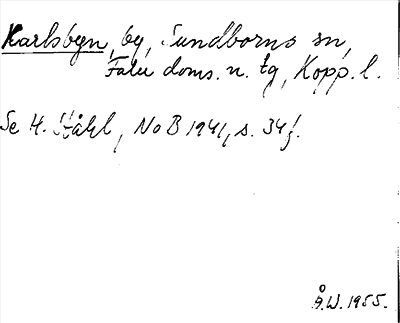 Karlsbyn, by, Sundborns sn,
Falu doms. n. tg, Kopp. l.
Se H. Ståhl, NoB 1941, s. 34 f.
Å.W. 1955.